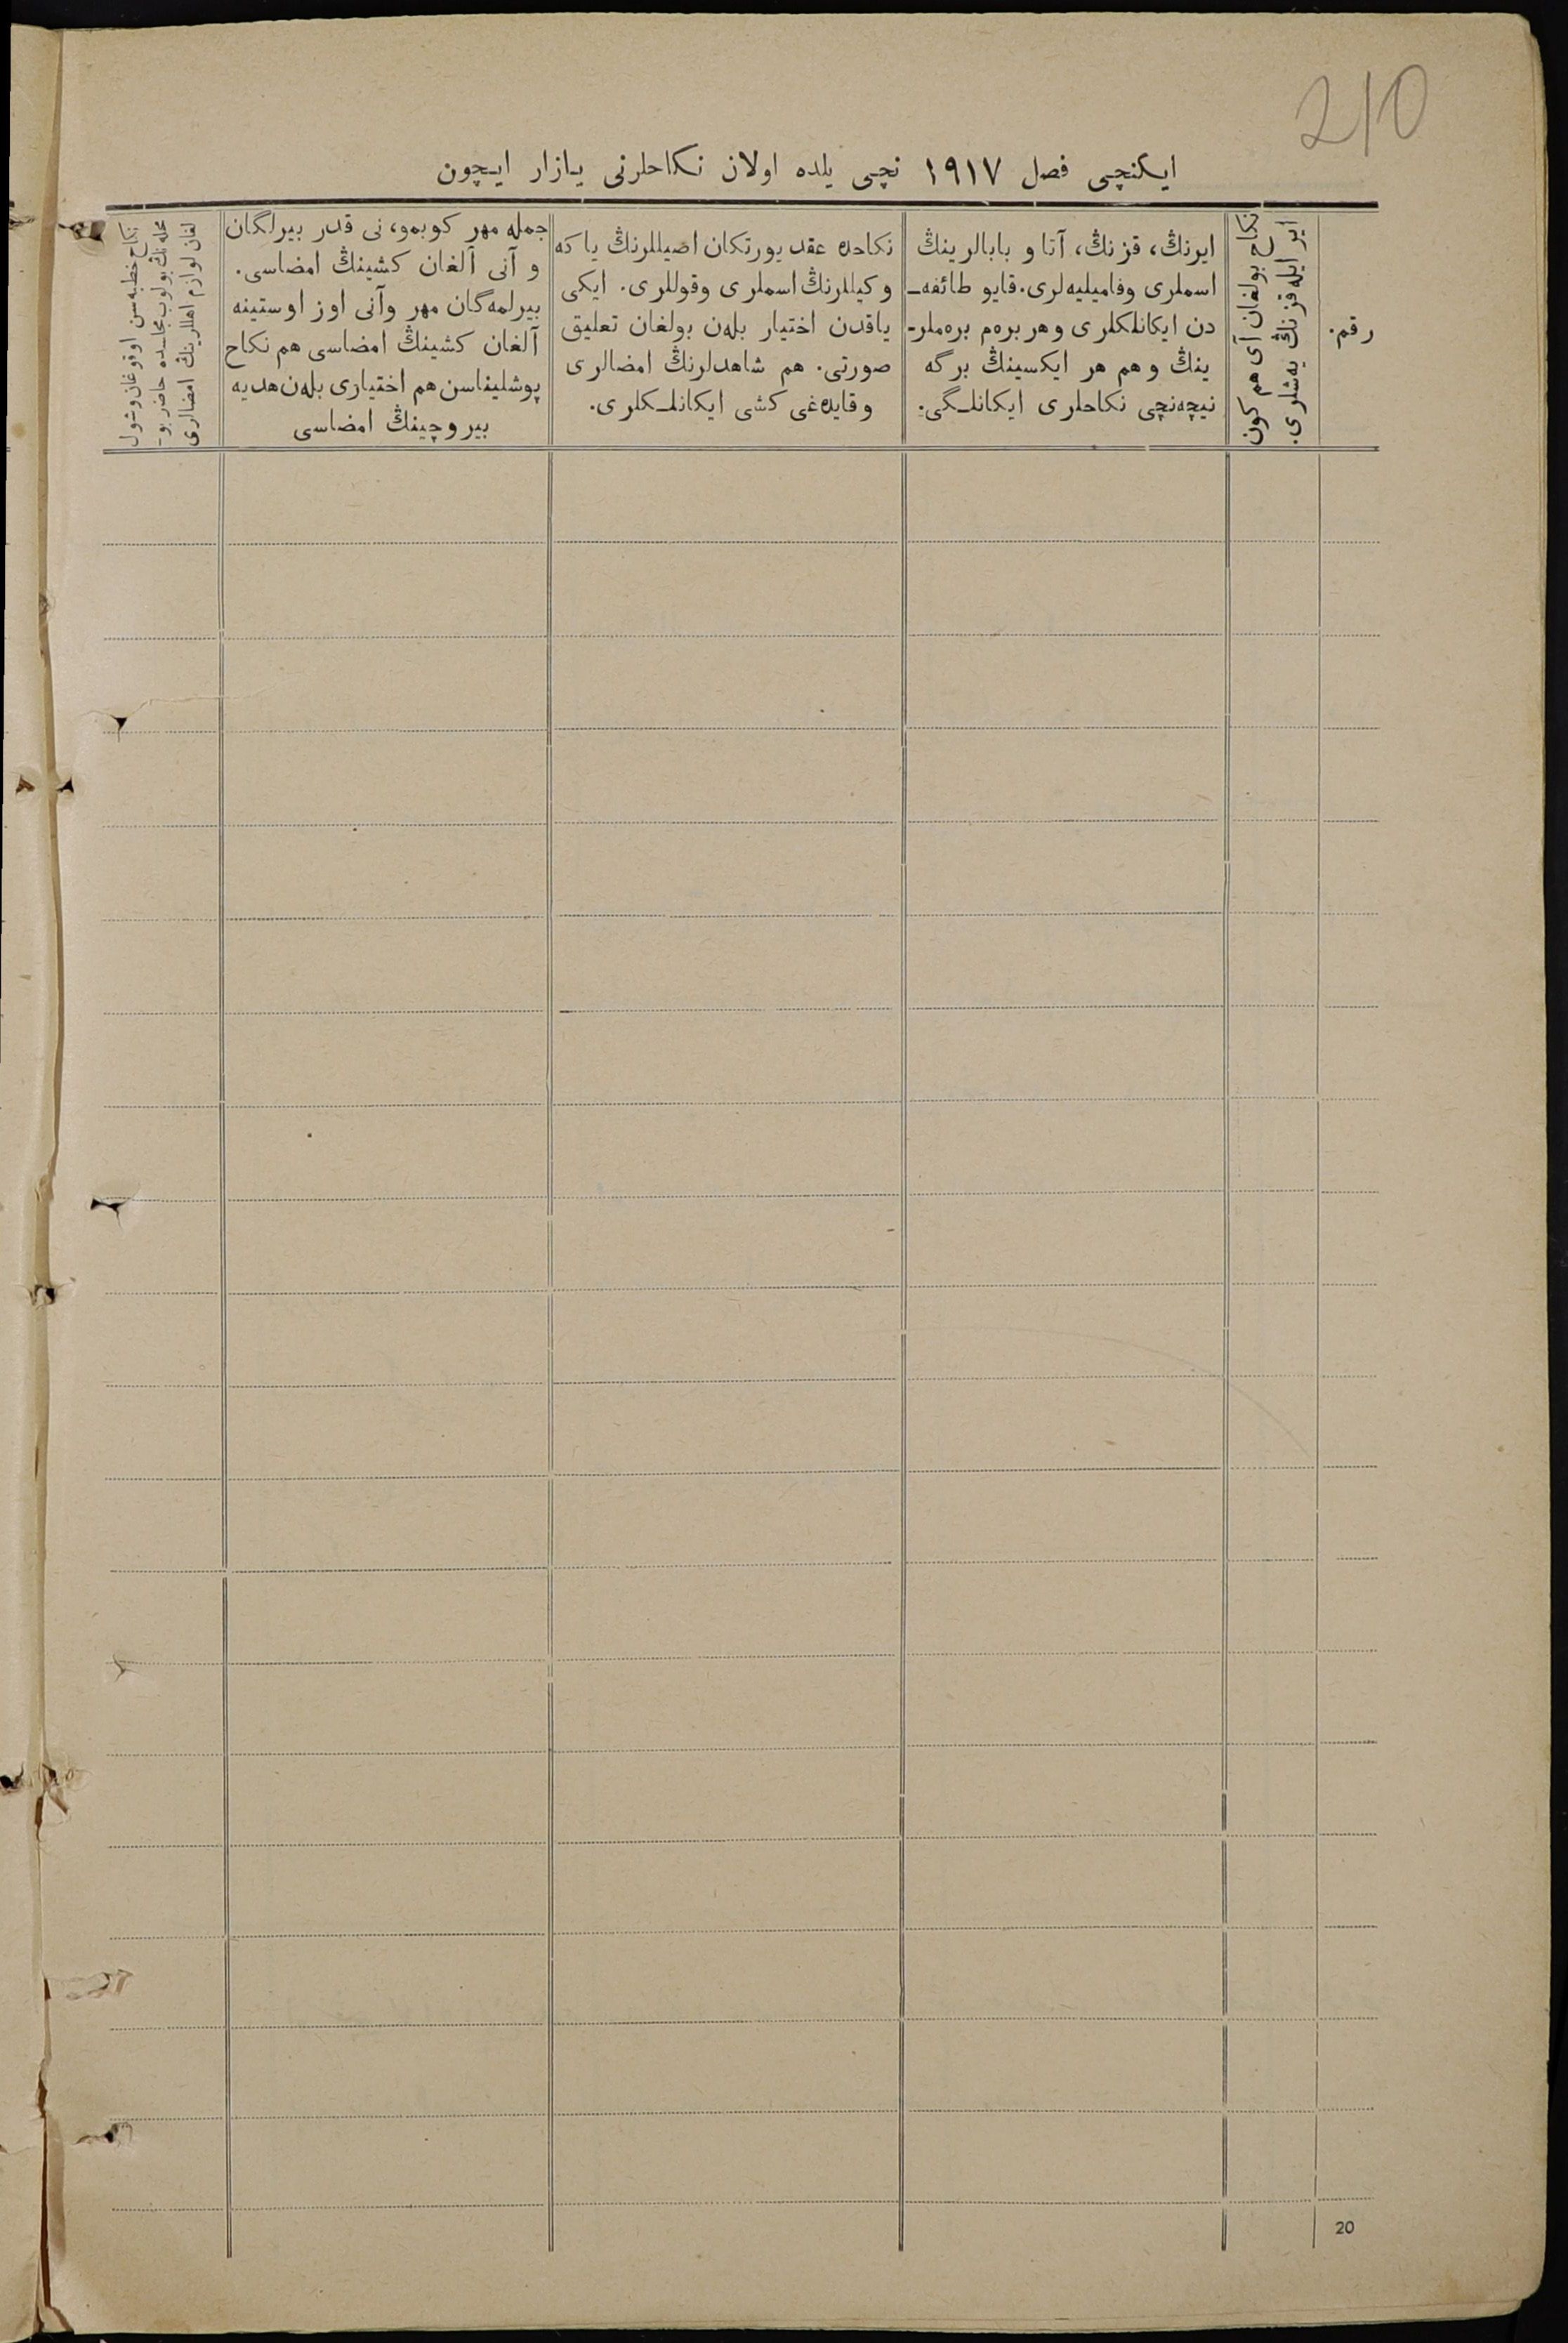 210
ایکنچی فصل ١٩١٧ نچی یلده اولان نکاحلرنی یازار ایچون
رقم.
ایر ایله قزنڭ یهشلری.
نکاح بولغان آی هم کون
ایرنڭ، قزنڭ، آتا و بابالرینڭ
اسملری وفامیلیهلری. قایو طائفه‍ـ
دن ایکانلکلری وهر برهم برهملر-
ینڭ وهم هر ایکسینڭ برگه
نیچهنچی نکاحلری ایکانلـگی.
نکاحده عقد یورتکان اصیللرنڭ یا که
وکیللرنڭ اسملری وقوللری. ایکی
یاقدن اختیار بلهن بولغان تعلیق
صورتی. هم شاهدلرنڭ امضالری
وقایدهغی کشی ایکانلـکلری.
جمله مهر کوبمو، نی قدر بیرلگان
و آنی آلغان کشینڭ امضاسی.
بیرلمهگان مهر وآنی اوز اوستینه
آلغان کشینڭ امضاسی هم نکاح
پوشلیناسن هم اختیاری بلهن هدیه
بیروچینڭ امضاسی
نکاح خطبهسن اوقوغان وشول
محلهنڭ بولوب مجلـده حاضر بو-
لغان لوازم اهللرینڭ امضالری
20